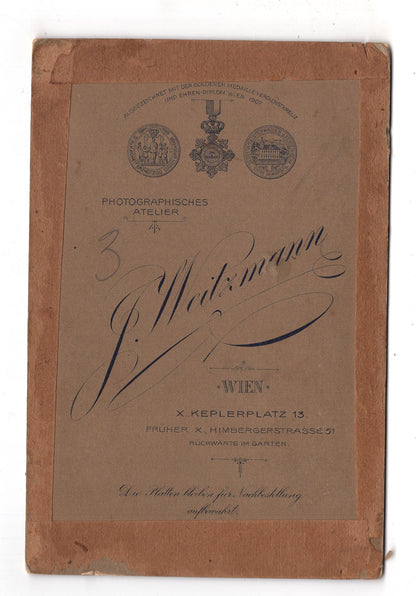 AUSGEZEICHNET MIT DER GOLDENEN MEDAILLE VERDIENSTKREUZ
UND EHREN-DIPLOM WIEN 1907.
PHOTOGRAPHISCHES
ATELIER
3
J. Weitzmann
· WIEN ·
X. KEPLERPLATZ 13.
FRÜHER X, HIMBERGERSTRASSE 51
RÜCKWÄRTS IM GARTEN.
Die Platten bleiben für Nachbestellung
aufbewahrt.